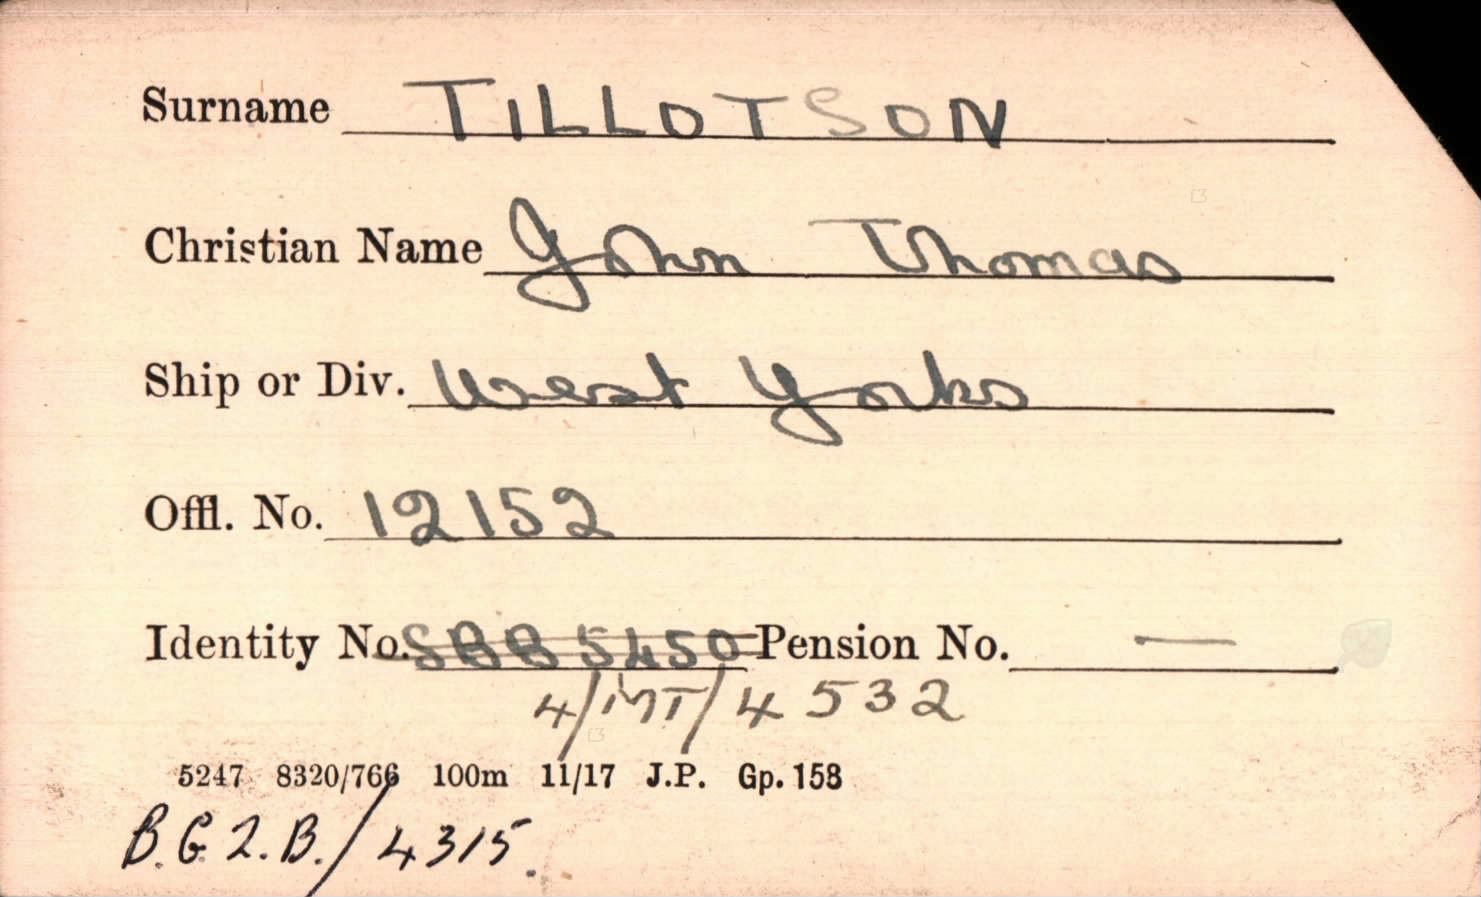 Surname TILLOTSON
Christian Name John Thomas
Ship or Div. West Yorks
Offl. No. 12152
Identity No. SBB5450 Pension No. —
4/MT/4532
5247 8320/766 100m 11/17 J.P. Gp. 158
B.G.2.B./4315.